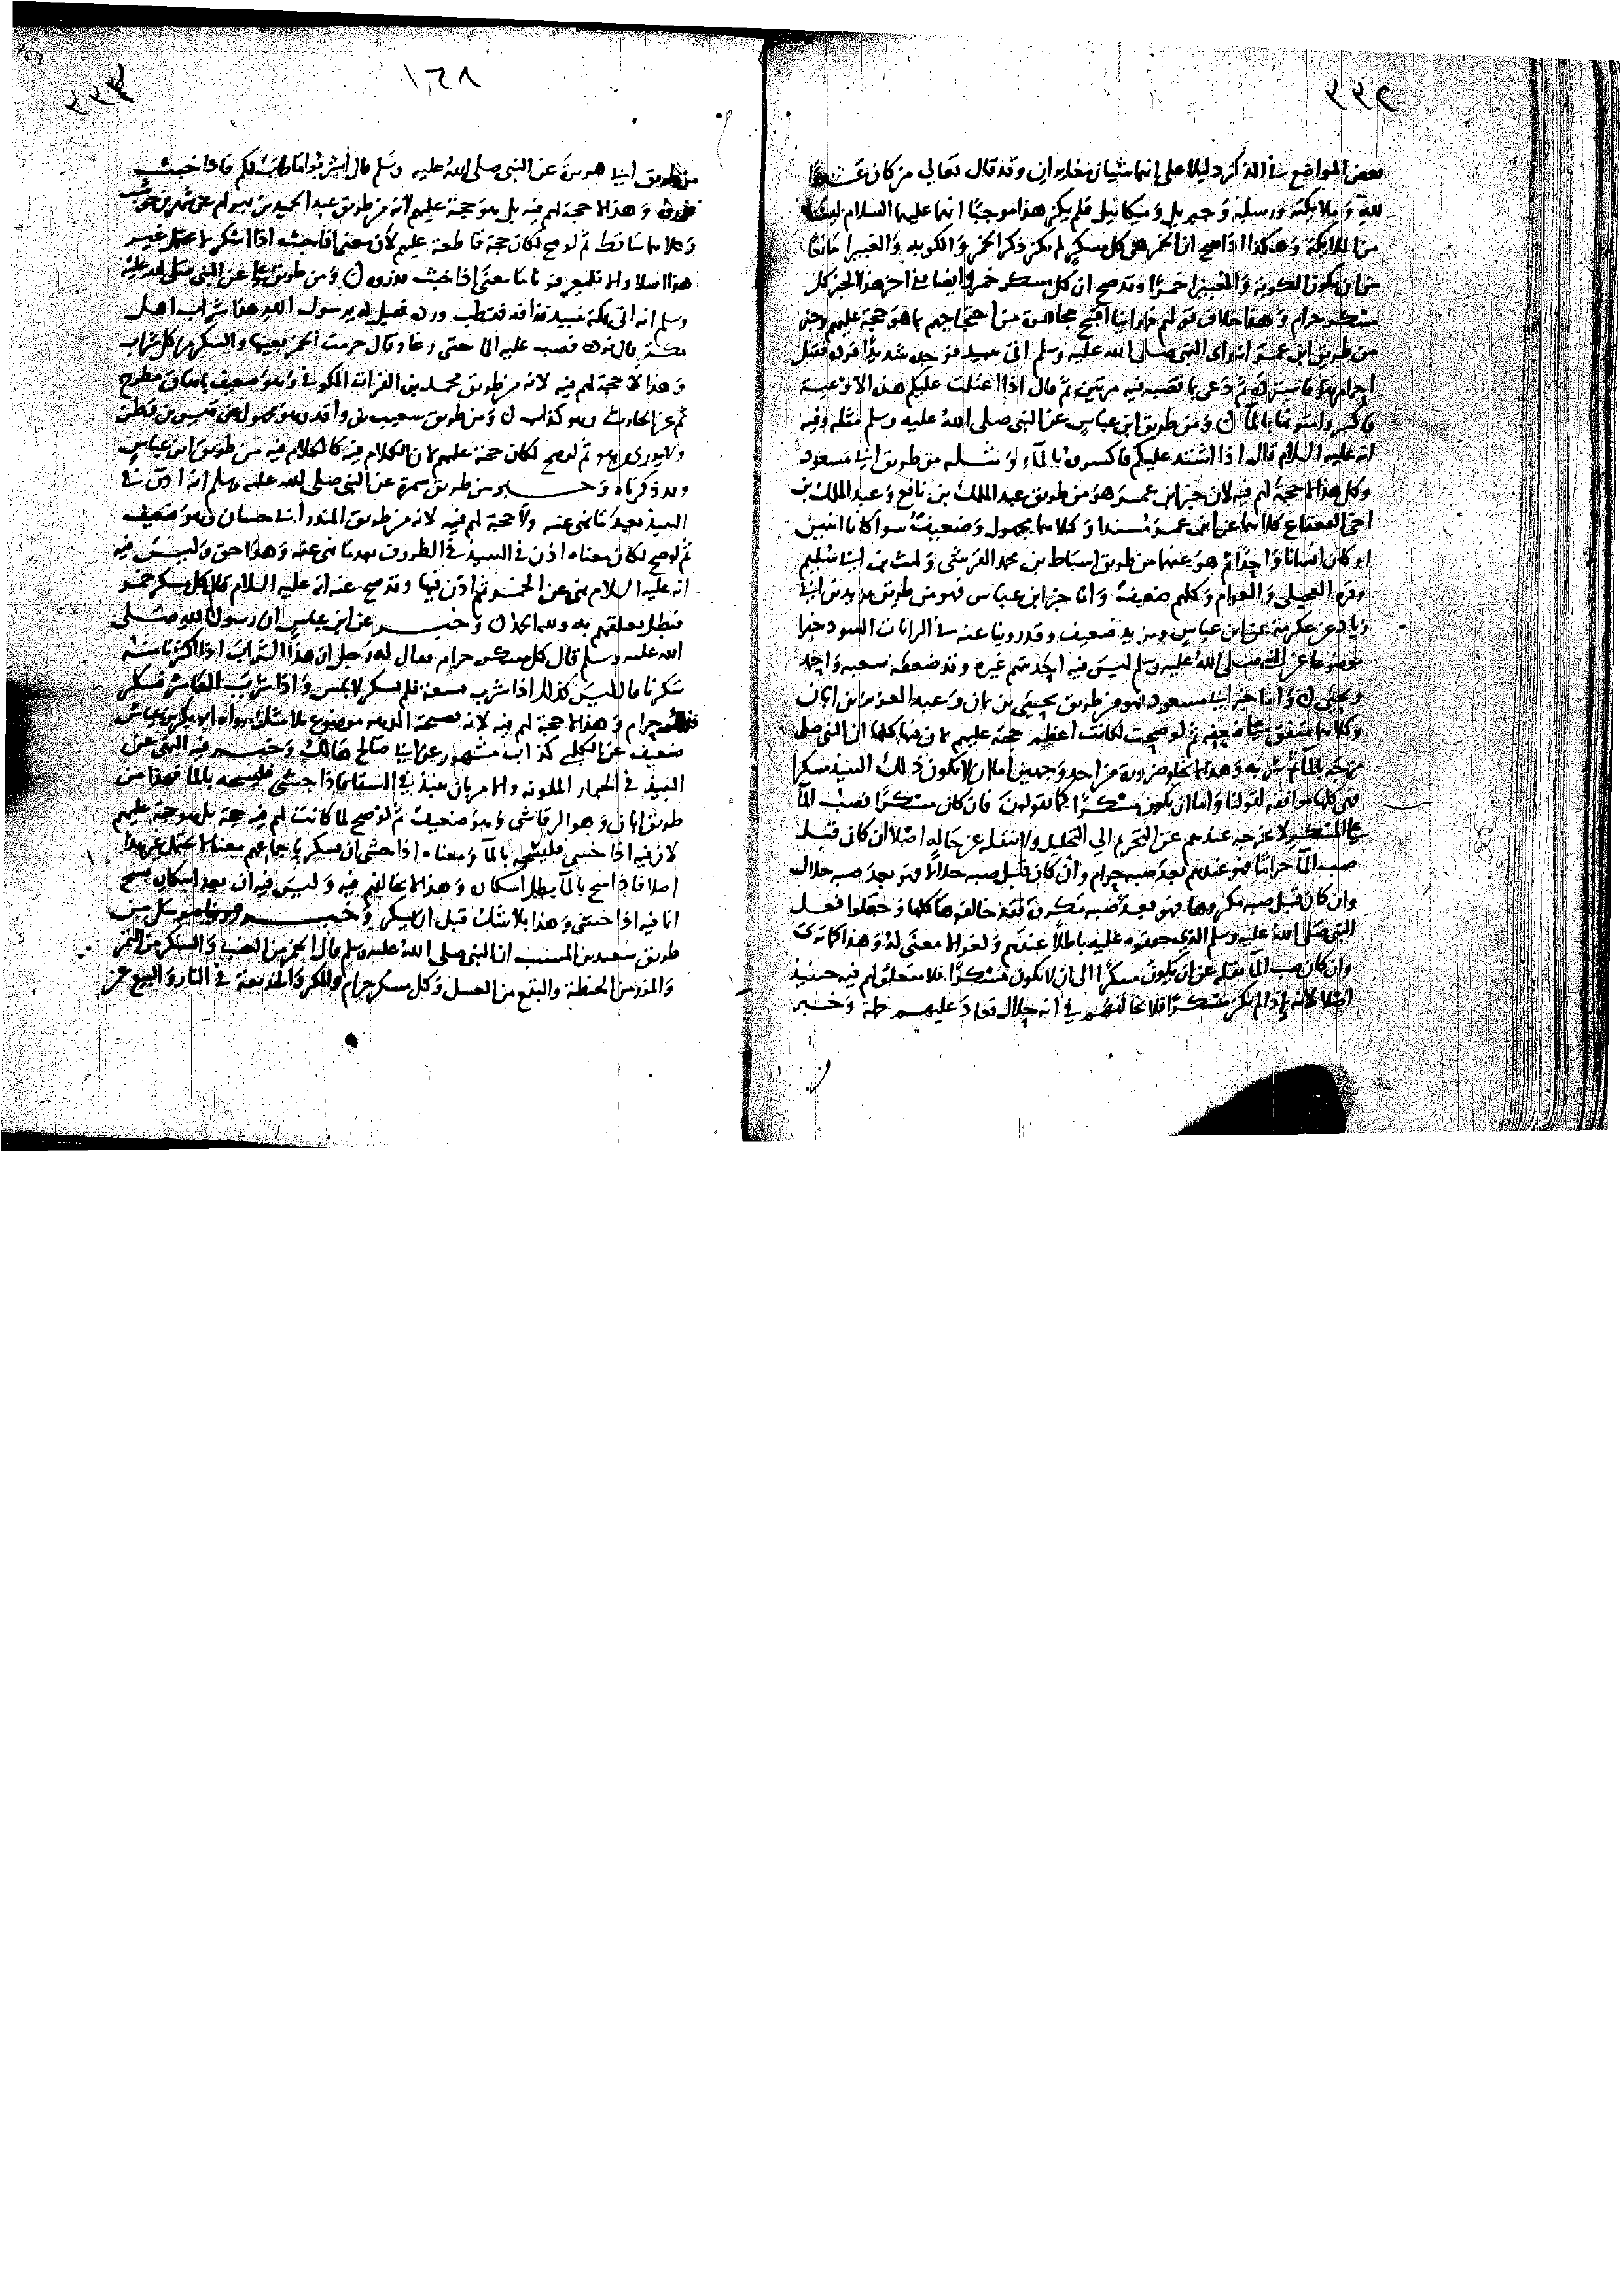 ٢٢٩
بعض المواضع في الذكر دليلا على انهما شيئان متغايران وقد قال تعالى من كان عدوا
لله وملايكته ورسله وجبريل وميكائيل فلم يكن هذا موجبا انهما عليهما السلام ليسا
من الملايكة وهكذا اذا صح ان الخمر هي كل مسكر لم يكن ذكر الخمر والكوبه والغبيرا مانعا
من ان يكون الكوبة والغبيرا خمرا وقد صح ان كل مسكر خمر وايضا في اخر هذا الخبر كل
مسكر حرام وهذا خلاف قولهم فما راينا اقبح مجاهرة من احتجاجهم بما هو حجة عليهم وخبر
من طريق ابن عمر انه راى النبي صلى الله عليه وسلم اتى بنبيذ فوجده شديدا فرده فقيل
احرام هو فاسترده ثم دعى بما فصبه فيه مرتين ثم قال اذا اغتلت عليكم هذه الاوعية
فاكسروا متونها بالماء ومن طريق ابن عباس عن النبي صلى الله عليه وسلم مثله وفيه
انه عليه السلام قال اذا اشتد عليكم فاكسروه بالماء ومثله من طريق ابي مسعود
وكل هذا لا حجة لهم فيه لان خبر ابن عمر هو من طريق عبد الملك بن نافع وعبد الملك بن
اخي القعقاع كلاهما عن ابن عمر مسندا وكلاهما مجهول وضعيف سوا كانا اثنين
او كان انسانا واحدا ثم هو عنهما من طريق اسباط بن محمد القرشي وليث بن ابي سليم
وقره العجلي والعوام وكلهم ضعيف واما خبر ابن عباس فهو من طريق يزيد بن ابي
زياد عن عكرمة عن ابن عباس ويزيد ضعيف وقد روينا عنه في الرايات السود خبرا
موضوعا عن النبي صلى الله عليه وسلم ليس فيه احد يتهم غيره وقد ضعفه شعبه واحمد
ويحيى واما خبر ابي مسعود فهو من طريق يحيى بن يمان وعبد العزيز بن ابان
وكلاهما متفق على ضعفه ثم لو صحت لكانت اعظم حجة عليهم لان فيها كلها ان النبي صلى
مزجه بالماء ثم شربه وهذا لا يخلو ضرورة من احد وجهين اما ان لا يكون ذلك النبيذ مسكرا
فهي كلها موافقه لقولنا واما ان يكون مسكرا كما يقولون فان كان مسكرا فصب الماء
على المسكر لا يخرجه عندهم عن التحريم الى التحليل ولا ينقله عن حاله اصلا ان كان قبل
صب الماء حراما فهو عندهم بعد صبه حرام وان كان قبل صبه حلالا فهو بعد صبه حلال
وان كان قبل صبه مكروها فهو بعد صبه مكروه فقد خالفوها كلها وجعلوا فعل
النبي صلى الله عليه وسلم الذي حققوه عليه باطلا عندهم ولغوا لا معنى له وهذا كما ترى
وان كان صب الماء ينقله عن ان يكون مسكرا الى ان لا يكون مسكرا فلا متعلق لهم فيه حينيذ
اصلا لانه اذا لم يكن مسكرا فلا نخالفهم في انه حلال فعاد عليهم جملة وخبر
١٦٨
من طريق ابي هريرة عن النبي صلى الله عليه وسلم قال اشربوا ما طاب لكم فاذا خبث
فذروه وهذا لا حجة لهم فيه بل هو حجة عليهم لانه من طريق عبد الحميد بن بهرام عن شهر بن حوشب
وكلاهما ساقط ثم لو صح لكان حجة قاطعة عليهم لان معنى اذا خبث اذا اسكر لا يحتمل غير
هذا اصلا والا فليعرفونا ما معنى اذا خبث فذروه ومن طريق علي عن النبي صلى الله عليه
وسلم انه اتى بمكة بنبيذ فذاقه فقطب ورده فقيل له يرسول الله هذا شراب اهل
مكة قال فرده فصب عليه الماء حتى رغا وقال حرمت الخمر بعينها والسكر من كل شراب
وهذا لا حجة لهم فيه لانه من طريق محمد بن الفرات الكوفي وهو ضعيف باتفاق مطرح
ثم عن الحارث وهو كذاب ومن طريق شعيب بن واقد وهو مجهول عن قيس بن قطن
ولا يدرى من هو ثم لو صح لكان حجة عليهم لان الكلام فيه كالكلام فيه من طريق ابن عباس
وقد ذكرناه وخبر من طريق سمرة عن النبي صلى الله عليه وسلم انه اذن في
النبيذ بعد ما نهى عنه ولا حجة لهم فيه لانه من طريق المنذر ابي حسان وهو ضعيف
ثم لو صح لكان معناه اذن في النبيذ في الظروف بعد ما نهى عنه وهذا حق وليس فيه
انه عليه السلام نهى عن الخمر ثم اذن فيها وقد صح عنه انه عليه السلام قال كل مسكر خمر
فبطل تعلقهم به ولله الحمد وخبر عن ابن عباس ان رسول الله صلى
الله عليه وسلم قال كل مسكر حرام فقال له رجل ان هذا الشراب اذا اكثرنا منه
سكرنا قال ليس كذلك اذا شرب تسعة فلم يسكر لا باس واذا شرب العاشر فسكر
فذلك حرام وهذا لا حجة لهم فيه لانه فضيحة الدهر موضوع بلا شك رواه ابو بكر بن عياش
ضعيف عن الكلبي كذاب مشهور عن ابي صالح هالك وخبر فيه النهي عن
النبيذ في الجرار الملونه والامر بان ينبذ في السقا فاذا خشي فليسجه بالماء فهذا من
طريق ابان وهو الرقاشي وهو ضعيف ثم لو صح لما كانت لهم فيه حجة بل هو حجة عليهم
لان فيه اذا خشي فليسجه بالماء ومعناه اذا خشي ان يسكر باجماعهم معنا لا يحتمل غير هذا
اصلا فاذا سج بالماء بطل اسكاره وهذا لا نخالفهم فيه وليس فيه ان بعد اسكاره يسج
انما فيه اذا خشي وهذا بلا شك قبل ان يسكر وخبر من
طريق سعيد بن المسيب ان النبي صلى الله عليه وسلم قال الخمر من العنب والسكر من التمر
والمزر من الحنطة والبتع من العسل وكل مسكر حرام والمكر والخديعة في النار والبيع عن